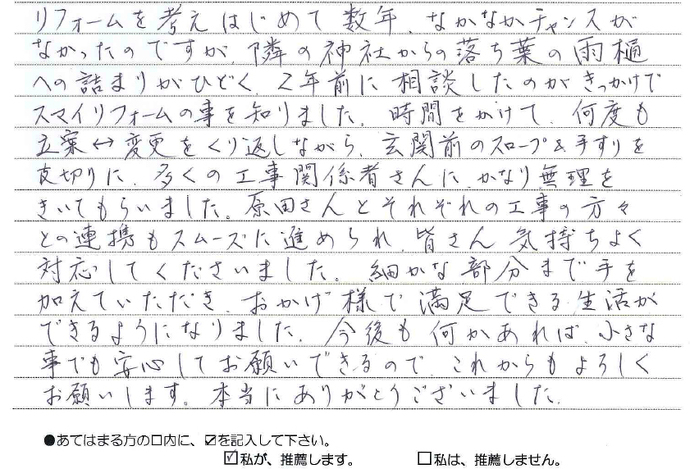 リフォームを考えはじめて数年、なかなかチャンスが
なかったのですが、隣の神社からの落ち葉の雨樋
への詰まりがひどく、2年前に相談したのがきっかけで
スマイリフォームの事を知りました。時間をかけて、何度も
立案↔変更をくり返しながら、玄関前のスロープ&手すりを
皮切りに、多くの工事関係者さんに、かなり無理を
きいてもらいました。原田さんとそれぞれの工事の方々
との連携もスムーズに進められ、皆さん気持ちよく
対応してくださいました。細かな部分まで手を
加えていただき、おかげ様で満足できる生活が
できるようになりました。今後も何かあれば、小さな
事でも安心してお願いできるので、これからもよろしく
お願いします。本当にありがとうございました。
●あてはまる方の口内に、☑を記入して下さい。
☑私が、推薦します。 □私は、推薦しません。